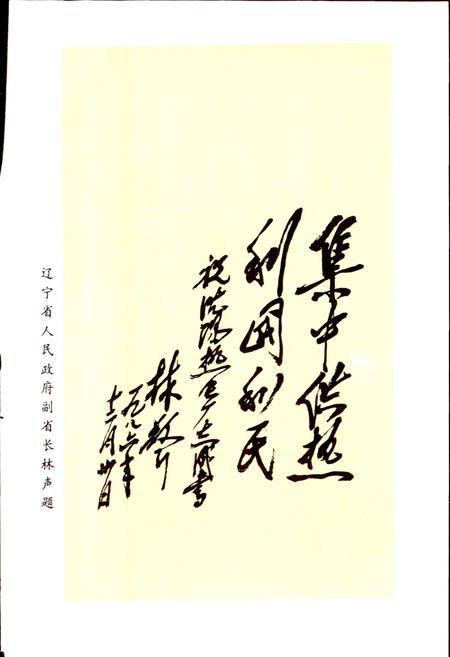 集中供热
利国利民
祝沈阳热电厂志成书
林声
一九八六年
十二月廿日
辽宁省人民政府副省长林声题